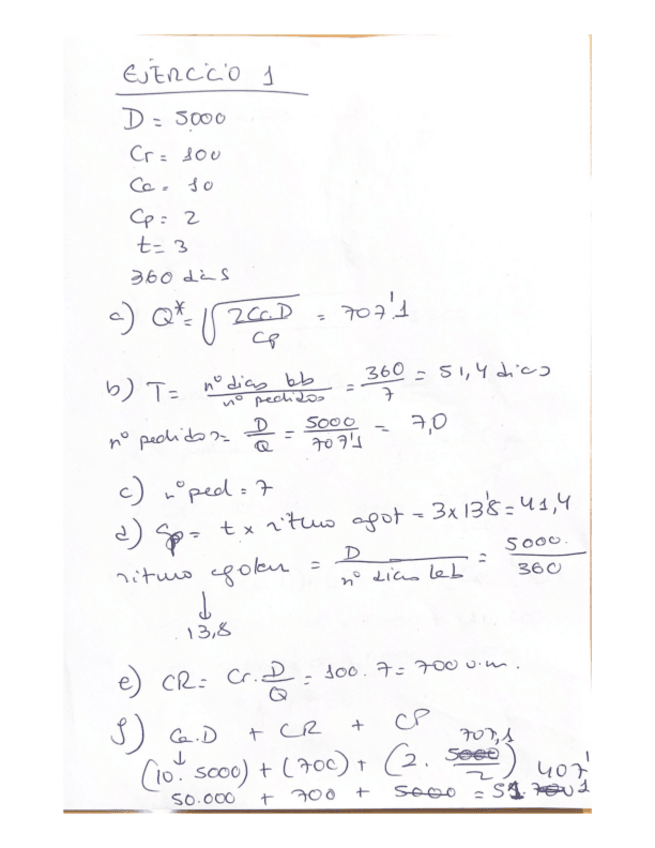 EJERCICIO 1
D = 5000
Cr = 100
Ca = 10
Cp = 2
t = 3
360 dias
a) Q* = √(2Cr.D / Cp) = 707'1
b) T = nº dias lab / nº pedidos = 360 / 7 = 51,4 dias
nº pedidos = D / Q = 5000 / 707'1 = 7,0
c) nº ped = 7
d) Sp = t x ritmo agot = 3 x 13'8 = 41,4
ritmo agotam = D / nº dias lab = 5000. / 360
↓
13,8
e) CR = Cr. D / Q = 100. 7 = 700 u.m.
f) Ca.D + CR + CP
↓
(10. 5000) + (700) + (2. 5000 707,1 / 2)
50.000 + 700 + 5000 = 51. 700 407'1